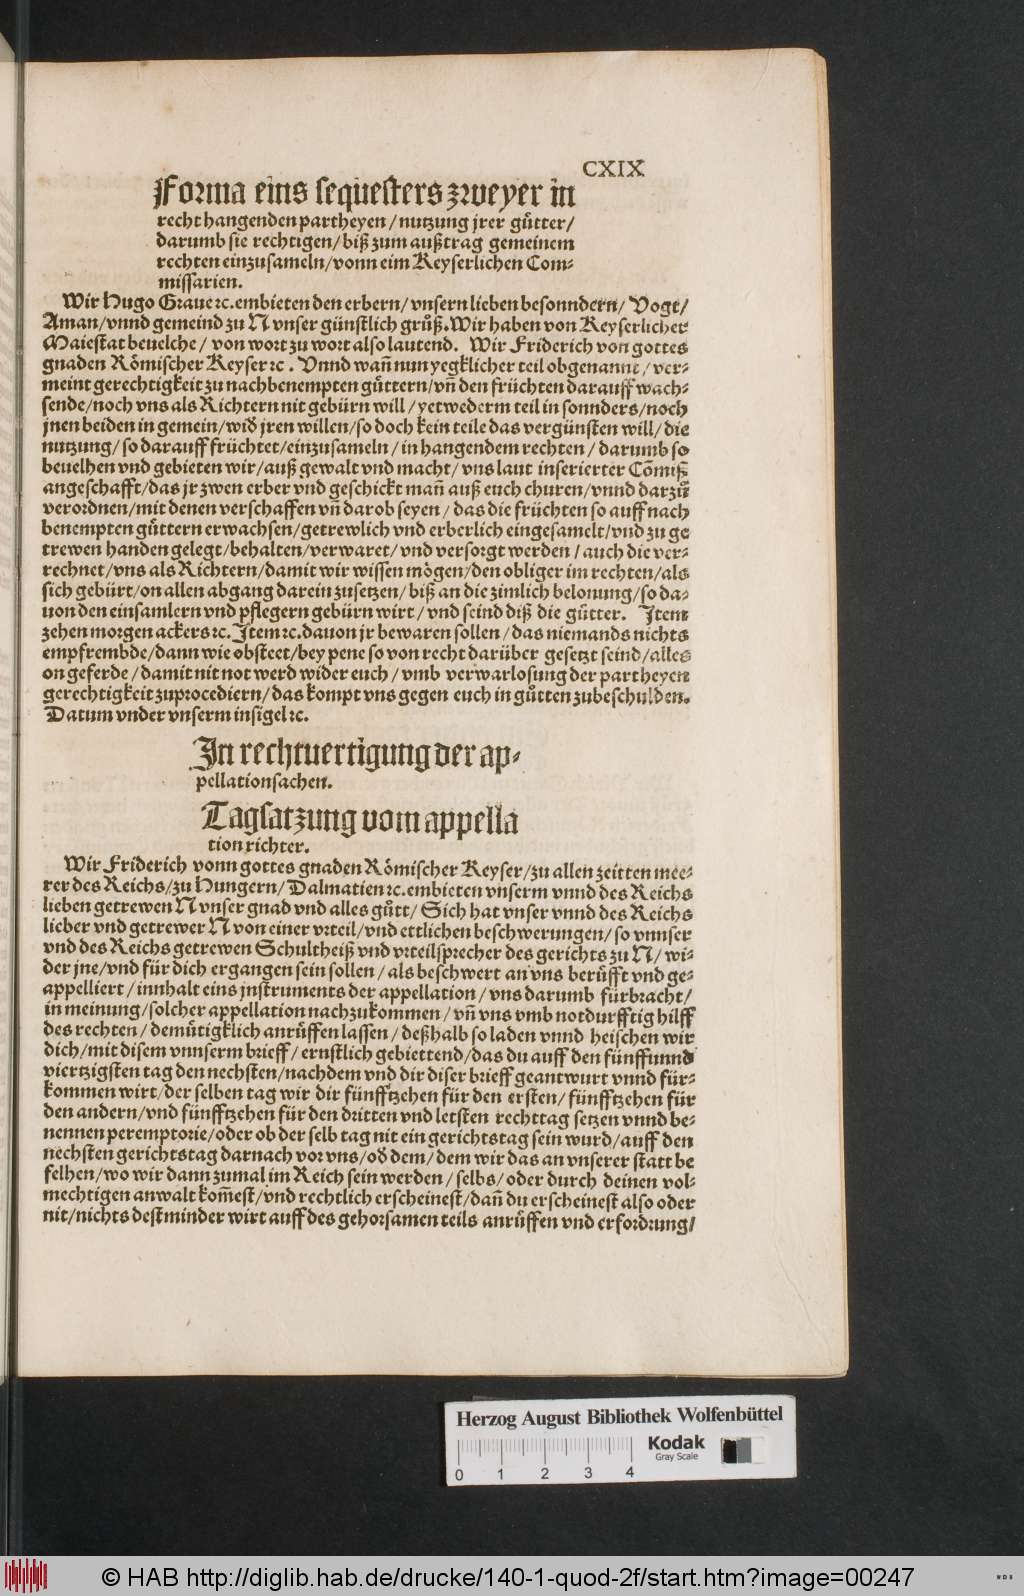 CXIX
Forma eins sequesters zweyer in
recht hangenden partheyen / nutzung jrer gůtter /
darumb sie rechtigen / biß zum außtrag gemeinem
rechten einzusameln / vonn eim Keyserlichen Com⸗
missarien.
Wir Hugo Graue ⁊c. embieten den erbern / vnsern lieben besonndern / Vogt /
Aman / vnnd gemeind zu N vnser günstlich grůß. Wir haben von Keyserlicher
Maiestat beuelche / von wort zu wort also lautend. Wir Friderich von gottes
gnaden Römischer Keyser ⁊c. Vnnd wañ nun yegklicher teil obgenannt / ver⸗
meint gerechtigkeit zu nachbenempten gůttern / vñ den früchten darauff wach⸗
sende / noch vns als Richtern nit gebürn will / yetwederm teil in sonnders / noch
jnen beiden in gemein / wiď jren willen / so doch kein teile das vergünsten will / die
nutzung / so darauff früchtet / einzusameln / in hangendem rechten / darumb so
beuelhen vnd gebieten wir / auß gewalt vnd macht / vns laut inserierter Cōmiß
angeschafft / das jr zwen erber vnd geschickt mañ auß euch churen / vnnd darzů
verordnen / mit denen verschaffen vñ darob seyen / das die früchten so auff nach
benempten gůttern erwachsen / getrewlich vnd erberlich eingesamelt / vnd zu ge
trewen handen gelegt / behalten / verwaret / vnd versorgt werden / auch die ver⸗
rechnet / vns als Richtern / damit wir wissen mögen / den obliger im rechten / als
sich gebürt / on allen abgang darein zusetzen / biß an die zimlich belonung / so da⸗
uon den einsamlern vnd pflegern gebürn wirt / vnd seind diß die gůtter. Item
zehen morgen ackers ⁊c. Item ⁊c. dauon jr bewaren sollen / das niemands nichts
empfrembde / dann wie obsteet / bey pene so von recht darüber gesetzt seind / alles
on geferde / damit nit not werd wider euch / vmb verwarlosung der partheyen
gerechtigkeit zuprocediern / das kompt vns gegen euch in gůtten zubeschulden.
Datum vnder vnserm insigel ⁊c.
In rechtuertigung der ap⸗
pellationsachen.
Tagsatzung vom appella
tion richter.
Wir Friderich vonn gottes gnaden Römischer Keyser / zu allen zeitten mee⸗
rer des Reichs / zu Hungern / Dalmatien ⁊c. embieten vnserm vnnd des Reichs
lieben getrewen N vnser gnad vnd alles gůtt / Sich hat vnser vnnd des Reichs
lieber vnd getrewer N von einer vrteil / vnd ettlichen beschwerungen / so vnnser
vnd des Reichs getrewen Schultheiß vnd vrteilsprecher des gerichts zu N / wi⸗
der jne / vnd für dich ergangen sein sollen / als beschwert an vns berůfft vnd ge⸗
appelliert / innhalt eins jnstruments der appellation / vns darumb fürbracht /
in meinung / solcher appellation nachzukommen / vñ vns vmb notdurfftig hilff
des rechten / demůtigklich anrůffen lassen / deßhalb so laden vnnd heischen wir
dich / mit disem vnnserm brieff / ernstlich gebiettend / das du auff den fünffunnd
viertzigsten tag den nechsten / nachdem vnd dir diser brieff geantwurt vnnd für⸗
kommen wirt / der selben tag wir dir fünfftzehen für den ersten / fünfftzehen für
den andern / vnd fünfftzehen für den dritten vnd letsten rechttag setzen vnnd be⸗
nennen peremptorie / oder ob der selb tag nit ein gerichtstag sein wurd / auff den
nechsten gerichtstag darnach vor vns / oď dem / dem wir das an vnserer statt be
felhen / wo wir dann zumal im Reich sein werden / selbs / oder durch deinen vol⸗
mechtigen anwalt kom̃est / vnd rechtlich erscheinest / dañ du erscheinest also oder
nit / nichts destminder wirt auff des gehorsamen teils anrůffen vnd erfordrung /
Herzog August Bibliothek Wolfenbüttel
Kodak
Gray Scale
0 1 2 3 4
© HAB http://diglib.hab.de/drucke/140-1-quod-2f/start.htm?image=00247